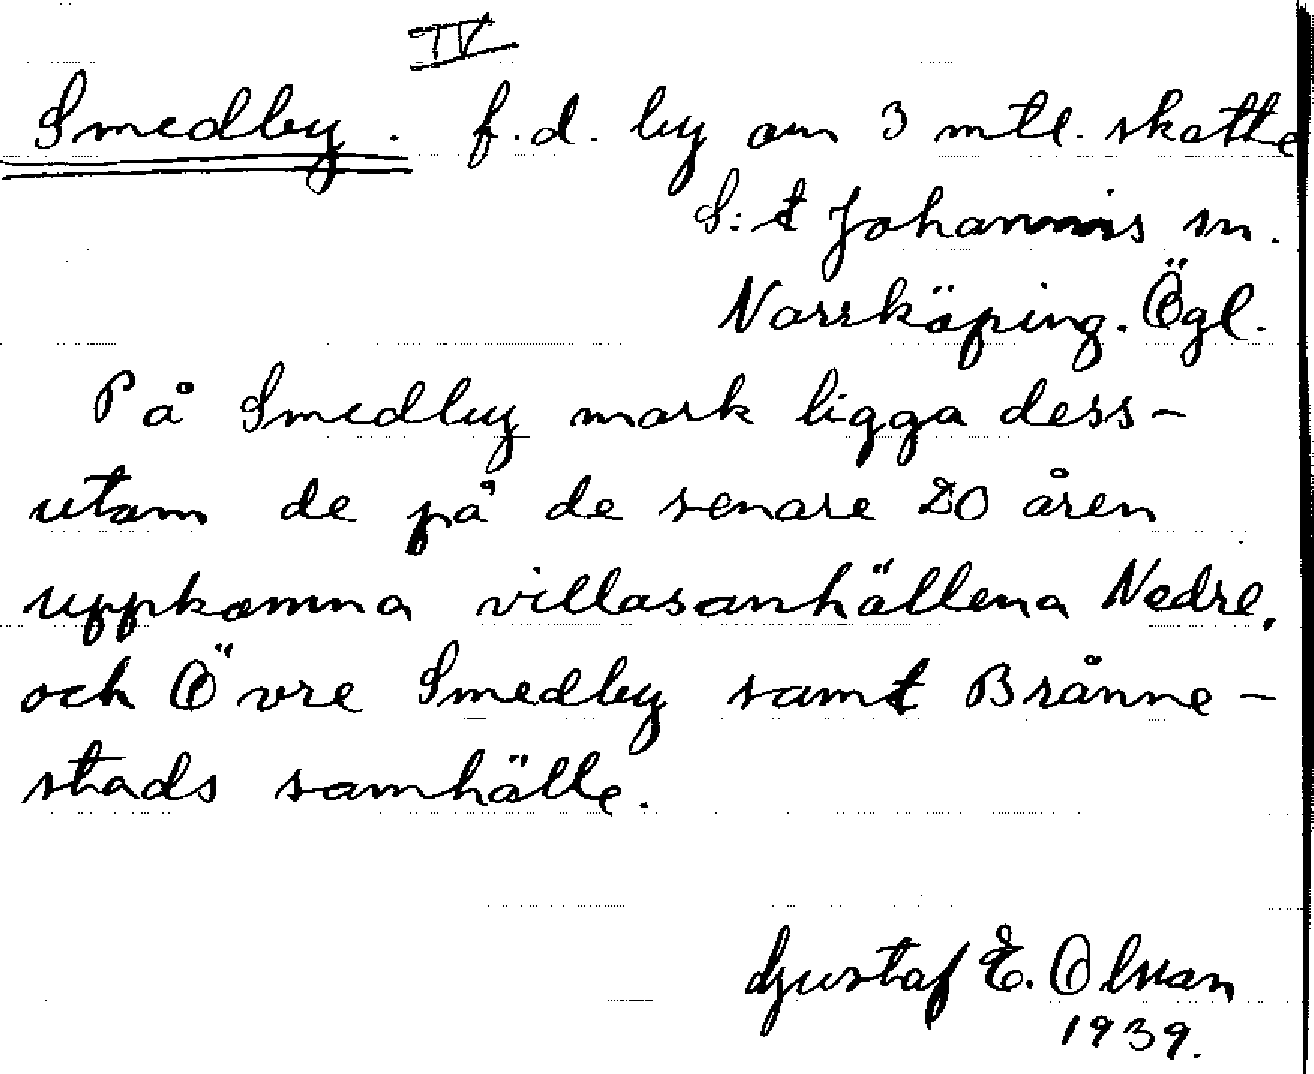 IV
Smedby. f.d. by om 3 mtl. skatte
S:t Johannis sn.
Norrköping. Ögl.
På Smedby mark ligga dess-
utom de på de senare 20 åren
uppkomna villasamhällena Nedre,
och Övre Smedby samt Brånne-
stads samhälle.
Gustaf E. Olson
1939.